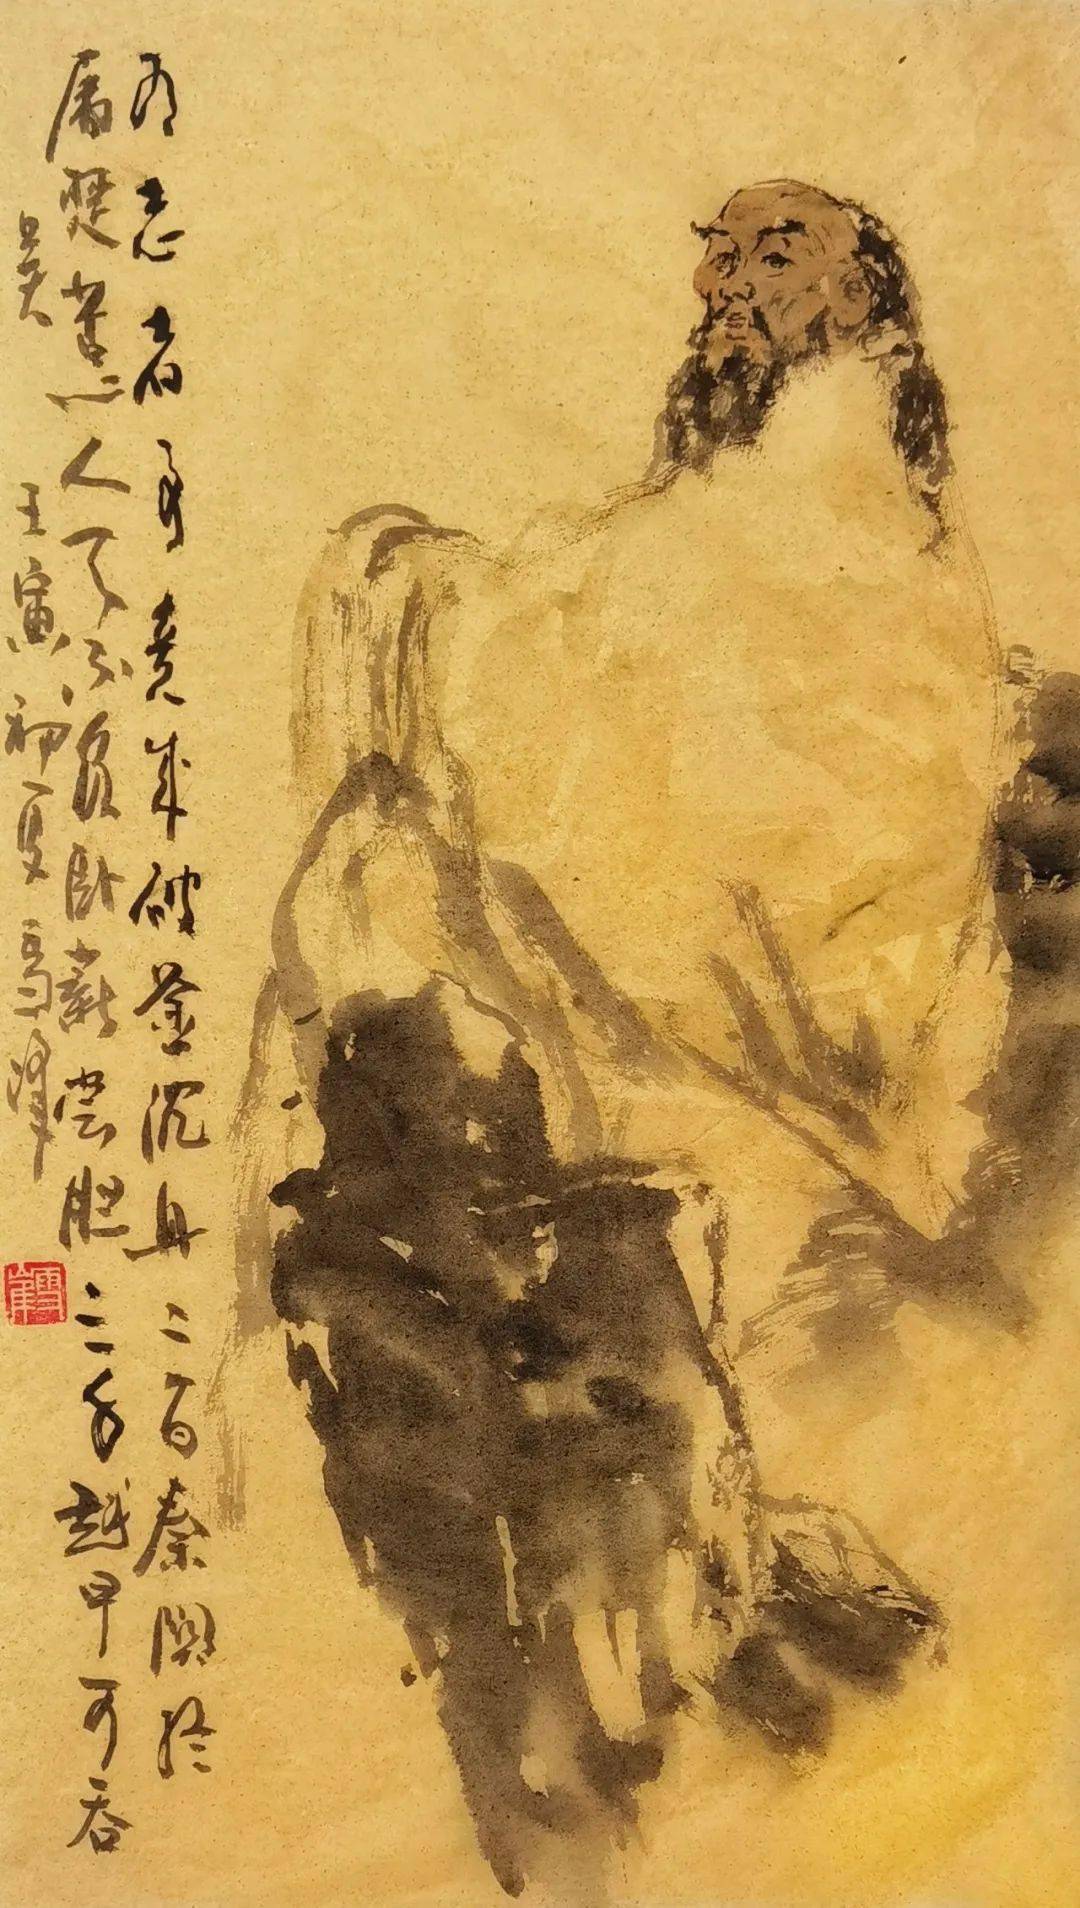 有志者事竟成破釜沉舟二百秦關终
属楚苦心人天不負卧薪尝胆三千越甲可吞
吴 壬寅初夏雪峰
雪峯